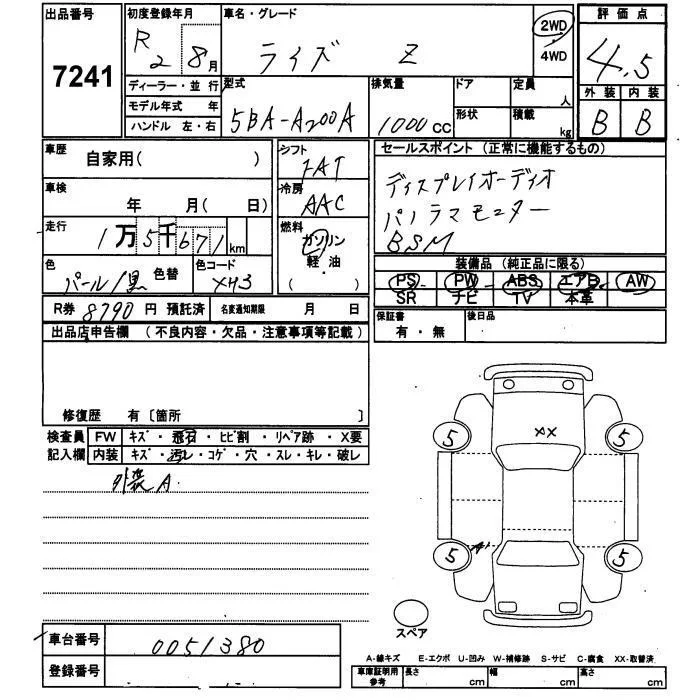 出品番号 初度登録年月 車名・グレード 2WD 評価点
7241 R2 8月 ライズ Z 4WD 4.5
ディーラー・並行 型式 排気量 ドア 定員 人 外装 内装
モデル年式 年 5BA-A200A 1000cc 形状 積載 kg B B
ハンドル 左・右
車歴 自家用( ) シフト FAT セールスポイント (正常に機能するもの)
車検 年 月( 日) 冷房 AAC ディスプレイオーディオ
走行 1万5千671km 燃料 ガソリン パノラマモニター
軽・油 BSM
( )
色 パール/黒 色替 色コード XH3 装備品 (純正品に限る)
PS PW ABS エアB AW
SR ナビ TV 本革
R券 8790円 預託済 名変通知期限 月 日 保証書 有・無 後日品
出品店申告欄 (不良内容・欠品・注意事項等記載)
修復歴 有〔箇所 〕
検査員 FW キズ・飛石・ヒビ割・リペア跡・X要
記入欄 内装 キズ・汚レ・コゲ・穴・スレ・キレ・破レ
外装A
XX
5 5
5 A1 5
スペア
車台番号 0051380
登録番号
A-線キズ E-エクボ U-凹み W-補修跡 S-サビ C-腐食 XX-取替済
車庫証明用参考 長さ cm 幅 cm 高さ cm